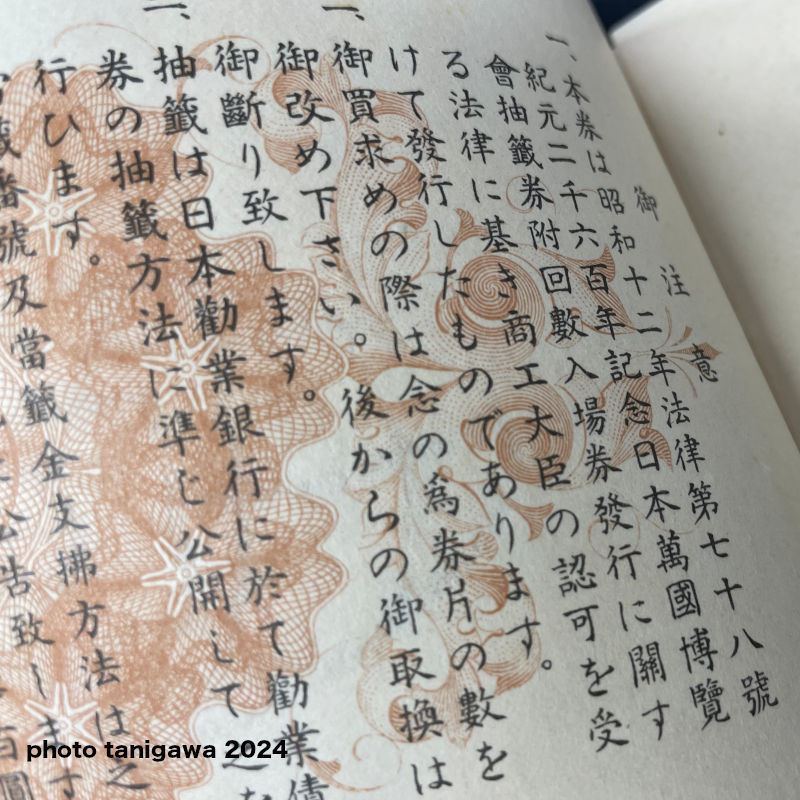 御注意
一、本券は昭和十二年法律第七十八號
紀元二千六百年記念日本萬國博覽
會抽籤券附回數入場券發行に關す
る法律に基き商工大臣の認可を受
けて發行したものであります。
一、御買求めの際は念の爲券片の數を
御改め下さい。後からの御取換は
御斷り致します。
一、抽籤は日本勸業銀行に於て勸業債
券の抽籤方法に準じ公開して之を
行ひます。
籤番號及當籤金支拂方法は之
公告致します
photo tanigawa 2024